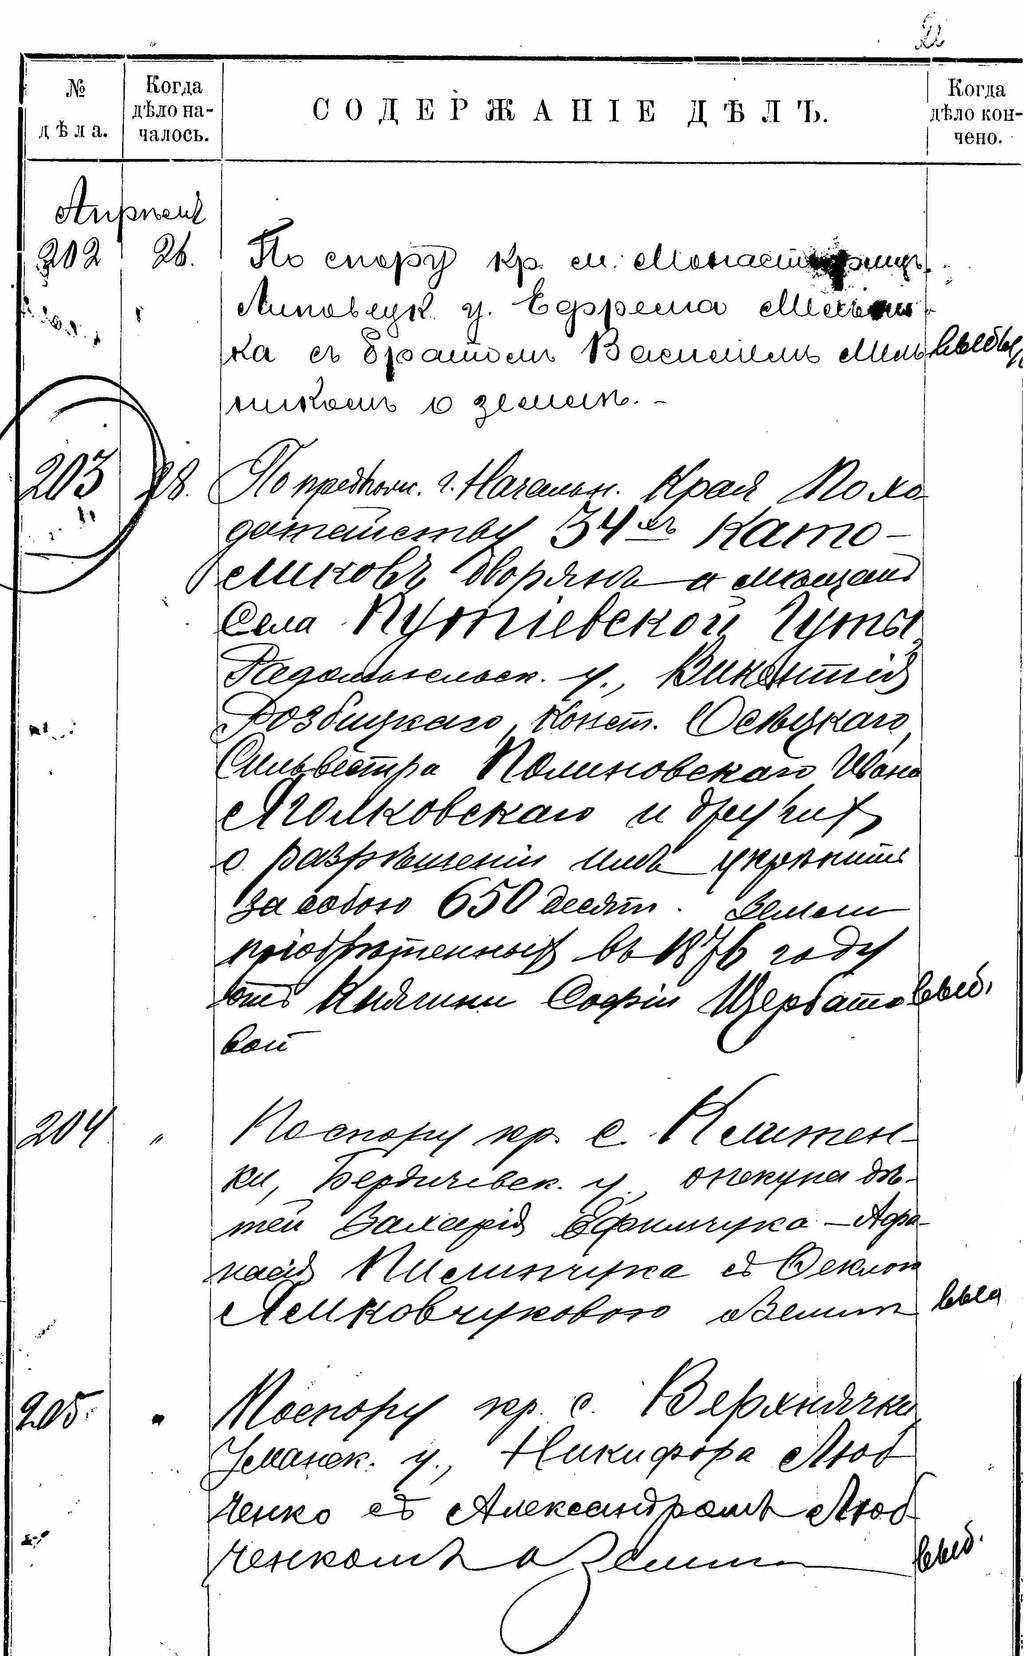 № дѣла.
Когда дѣло началось.
СОДЕРЖАНІЕ ДѢЛЪ.
Когда дѣло кончено.
Апрѣль
202 26. По спору кр. м. Монастырищъ
Липовецк. у. Ефрема Мельни-
ка съ братомъ Василіемъ Мель выбы
никомъ о землѣ. -
203 28. По предпом. г. Начальн. Края По хо
датайству 34хъ Като-
ликовъ дворянъ и мѣщанъ
Села Путіевской Гуты
Радомысльск. у., Викентія
Розбицкаго, Конст. Осѣцкаго,
Сильвестра Полиновскаго Ивана
Яголковскаго и другихъ
о разрѣшеніи имъ укрѣпить
за собою 650 десят. земли
пріобрѣтенных въ 1876 году
отъ Княгини Софіи Щербато выб.
вой
204 " По спору кр. с. Клитен-
ки, Бердичевск. у. опекуна дѣ-
тей Захарія Ефимчука - Афа-
насія Пилипчука съ Феклою
Ясковчуковою о землѣ выб
205. " По спору кр. с. Верхнячки
Уманск. у., Никифора Люб
ченко съ Александромъ Люб-
ченкомъ о землѣ выб.